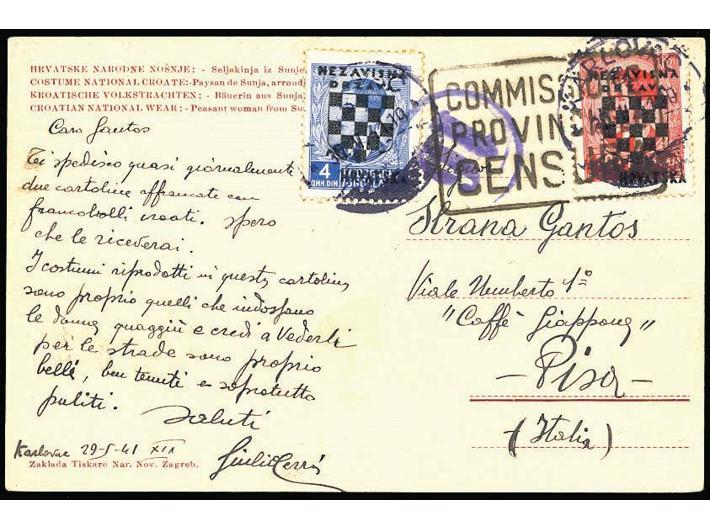 HRVATSKE NARODNE NOŠNJE: - Seljakinja iz Sunje
COSTUME NATIONAL CROATE: -Paysan de Sunja, arrond
KROATISCHE VOLKSTRACHTEN: - Bäuerin aus Sunja
CROATIAN NATIONAL WEAR: - Peasant woman from Su
NEZAVISNA
DRŽAVA
4
HRVATSKA
COMMISS
PROVIN
CENSU
NEZAVISNA
DRŽAVA
HRVATSKA
Caro Gantos
Ti spedisco quasi giornalmente
due cartoline affrancate con
francobolli croati. Spero
che le riceverai.
I costumi riprodotti in questa cartolina
sono proprio quelli che indossano
le donne quaggiù e credi a vederli
per le strade sono proprio
belli, ben tenuti e soprattutto
puliti.
Saluti
Karlovac 29-5-41 XIX
Zaklada Tiskare Nar. Nov. Zagreb.
Strana Gantos
Viale Umberto 1º
"Caffè Giappone"
- Pisa -
(Italia)